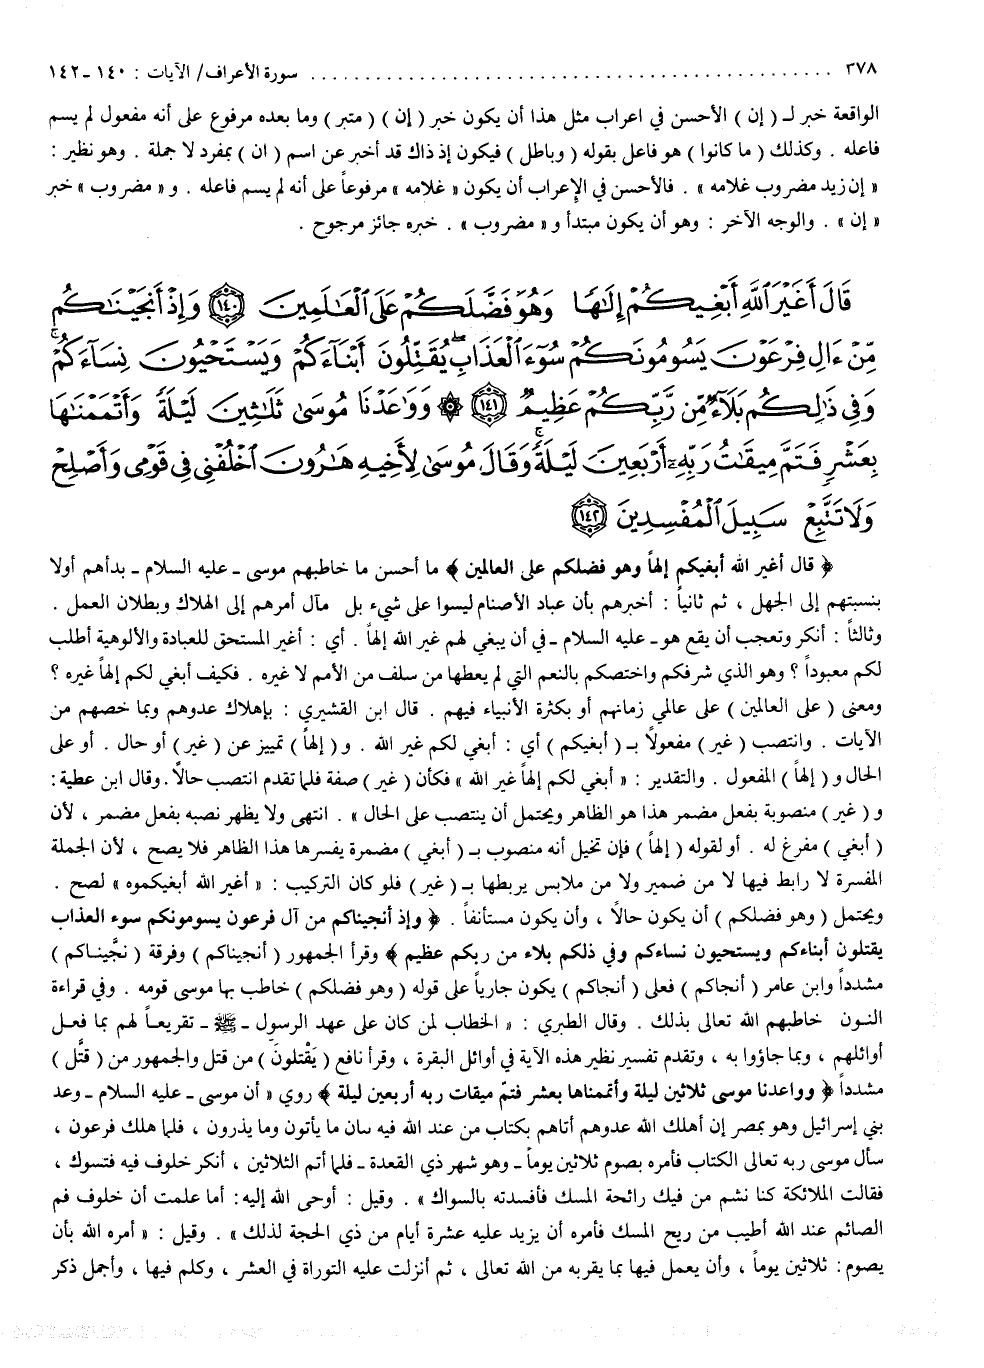 ٣٧٨ ........................................ سورة الأعراف/ الآيات : ١٤٠ - ١٤٢
الواقعة خبر لـ ( إن ) الأحسن في اعراب مثل هذا أن يكون خبر ( إن ) ( متبر ) وما بعده مرفوع على أنه مفعول لم يسم
فاعله . وكذلك ( ما كانوا ) هو فاعل بقوله ( وباطل ) فيكون إذ ذاك قد أخبر عن اسم ( ان ) بمفرد لا جملة . وهو نظير :
« إن زيد مضروب غلامه » . فالأحسن في الإعراب أن يكون « غلامه » مرفوعاً على أنه لم يسم فاعله . و « مضروب » خبر
« إن » . والوجه الآخر : وهو أن يكون مبتدأ و « مضروب » . خبره جائز مرجوح .
قَالَ أَغَيْرَ ٱللَّهِ أَبْغِيكُمْ إِلَٰهًا وَهُوَ فَضَّلَكُمْ عَلَى ٱلْعَٰلَمِينَ ١٤٠ وَإِذْ أَنجَيْنَٰكُم
مِّنْ ءَالِ فِرْعَوْنَ يَسُومُونَكُمْ سُوٓءَ ٱلْعَذَابِ ۖ يُقَتِّلُونَ أَبْنَآءَكُمْ وَيَسْتَحْيُونَ نِسَآءَكُمْ ۚ
وَفِى ذَٰلِكُم بَلَآءٌ مِّن رَّبِّكُمْ عَظِيمٌ ١٤١ ۞ وَوَٰعَدْنَا مُوسَىٰ ثَلَٰثِينَ لَيْلَةً وَأَتْمَمْنَٰهَا
بِعَشْرٍ فَتَمَّ مِيقَٰتُ رَبِّهِۦٓ أَرْبَعِينَ لَيْلَةً ۚ وَقَالَ مُوسَىٰ لِأَخِيهِ هَٰرُونَ ٱخْلُفْنِى فِى قَوْمِى وَأَصْلِحْ
وَلَا تَتَّبِعْ سَبِيلَ ٱلْمُفْسِدِينَ ١٤٢
﴿ قال أغير الله أبغيكم إلهاً وهو فضلكم على العالمين ﴾ ما أحسن ما خاطبهم موسى - عليه السلام - بدأهم أولا
بنسبتهم إلى الجهل ، ثم ثانياً : أخبرهم بأن عباد الأصنام ليسوا على شيء بل مآل أمرهم إلى الهلاك وبطلان العمل .
وثالثاً : أنكر وتعجب أن يقع هو - عليه السلام - في أن يبغي لهم غير الله إلهاً . أي : أغير المستحق للعبادة والألوهية أطلب
لكم معبوداً ؟ وهو الذي شرفكم واختصكم بالنعم التي لم يعطها من سلف من الأمم لا غيره . فكيف أبغي لكم إلهاً غيره ؟
ومعنى ( على العالمين ) على عالمي زمانهم أو بكثرة الأنبياء فيهم . قال ابن القشيري : بإهلاك عدوهم وبما خصهم من
الآيات . وانتصب ( غير ) مفعولًا بـ ( أبغيكم ) أي : أبغي لكم غير الله . و ( إلهاً ) تمييز عن ( غير ) أو حال . أو على
الحال و ( إلهاً ) المفعول . والتقدير : « أبغي لكم إلهاً غير الله » فكأن ( غير ) صفة فلما تقدم انتصب حالًا . وقال ابن عطية :
و ( غير ) منصوبة بفعل مضمر هذا هو الظاهر ويحتمل أن ينتصب على الحال » . انتهى ولا يظهر نصبه بفعل مضمر ، لأن
( أبغي ) مفرغ له . أو لقوله ( إلهاً ) فإن تخيل أنه منصوب بـ ( أبغي ) مضمرة يفسرها هذا الظاهر فلا يصح ، لأن الجملة
المفسرة لا رابط فيها لا من ضمير ولا من ملابس يربطها بـ ( غير ) فلو كان التركيب : « أغير الله أبغيكموه » لصح .
ويحتمل ( وهو فضلكم ) أن يكون حالًا ، وأن يكون مستأنفاً . ﴿ وإذ أنجيناكم من آل فرعون يسومونكم سوء العذاب
يقتلون أبناءكم ويستحيون نساءكم وفي ذلكم بلاء من ربكم عظيم ﴾ وقرأ الجمهور ( أنجيناكم ) وفرقة ( نجَّيناكم )
مشدداً وابن عامر ( أنجاكم ) فعلى ( أنجاكم ) يكون جارياً على قوله ( وهو فضلكم ) خاطب بها موسى قومه . وفي قراءة
النون خاطبهم الله تعالى بذلك . وقال الطبري : « الخطاب لمن كان على عهد الرسول - ﷺ - تقريعاً لهم بما فعل
أوائلهم ، وبما جاؤوا به ، وتقدم تفسير نظير هذه الآية في أوائل البقرة ، وقرأ نافع ( يَقْتلونَ ) من قتل والجمهور من ( قتَّل )
مشدداً ﴿ وواعدنا موسى ثلاثين ليلة وأتممناها بعشر فتمّ ميقات ربه أربعين ليلة ﴾ روي « أن موسى - عليه السلام - وعد
بني إسرائيل وهو بمصر إن أهلك الله عدوهم أتاهم بكتاب من عند الله فيه بيان ما يأتون وما يذرون ، فلما هلك فرعون ،
سأل موسى ربه تعالى الكتاب فأمره بصوم ثلاثين يوماً - وهو شهر ذي القعدة - فلما أتم الثلاثين ، أنكر خلوف فيه فتسوك ،
فقالت الملائكة كنا نشم من فيك رائحة المسك فأفسدته بالسواك » . وقيل : أوحى الله إليه : أما علمت أن خلوف فم
الصائم عند الله أطيب من ريح المسك فأمره أن يزيد عليه عشرة أيام من ذي الحجة لذلك » . وقيل : « أمره الله بأن
يصوم : ثلاثين يوماً ، وأن يعمل فيها بما يقربه من الله تعالى ، ثم أنزلت عليه التوراة في العشر ، وكلم فيها ، وأجمل ذكر